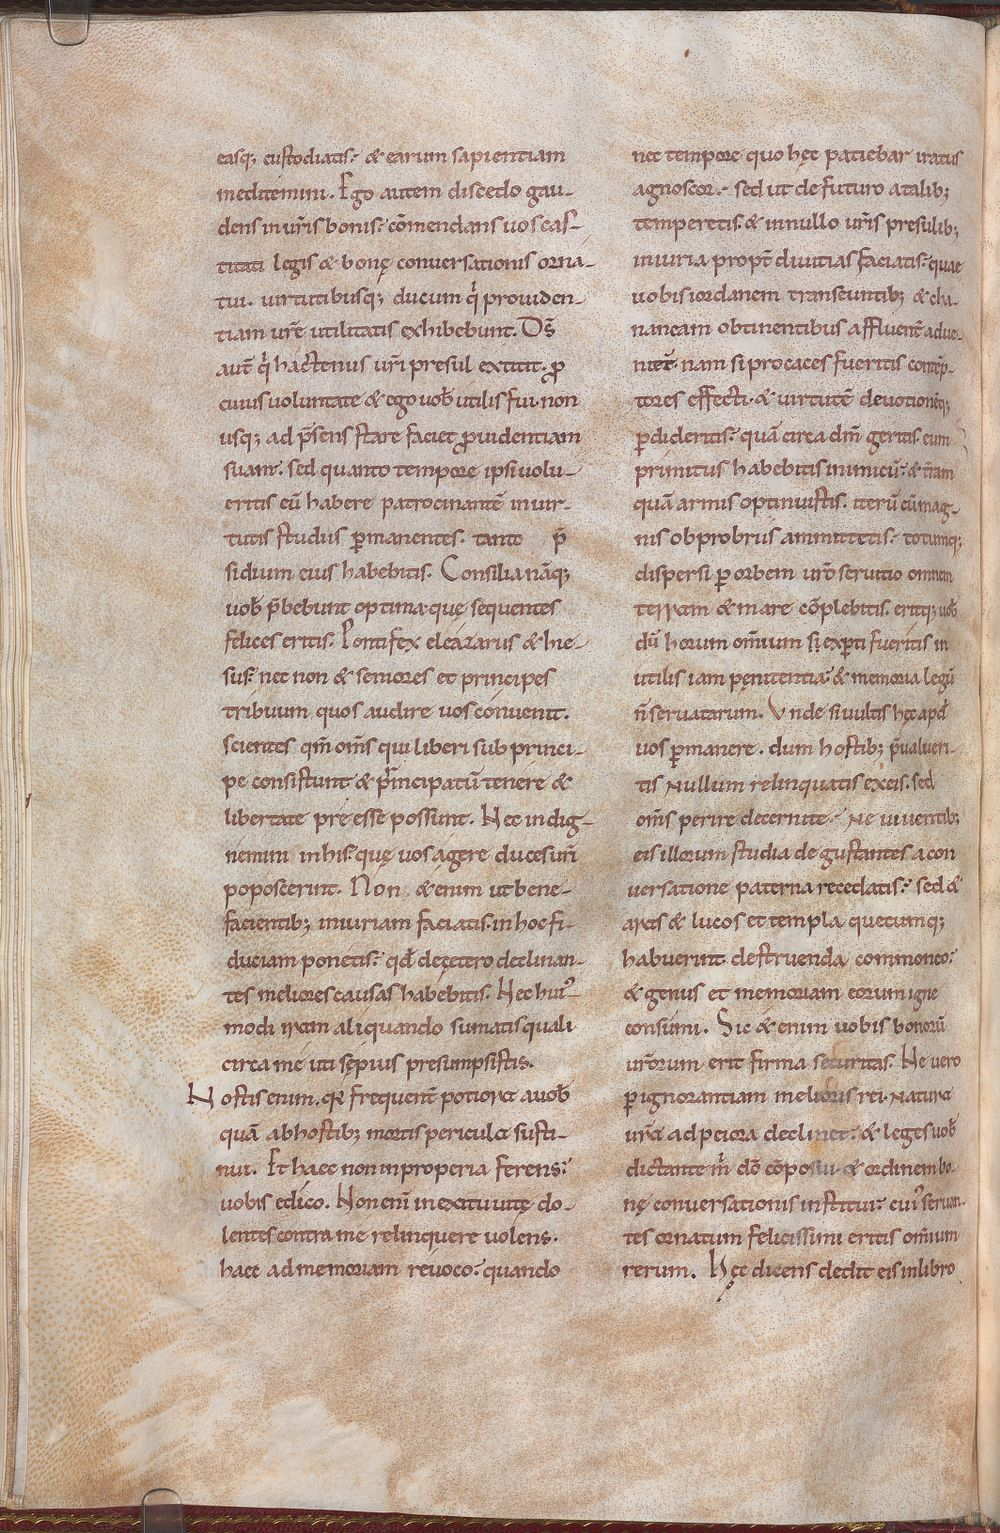 easq; custodiatis· & earum sapientiam
meditemini. Ego autem discedo gau-
dens in urīs bonis· cōmendans uos cas-
titati legis & bonę conuersationis orna-
tui. uirtutibusq; ducum q̇ prouiden-
tiam urē utilitatis exhibebunt. Ds̄
aut̄ q̇ hactenus urī presul extitit. ꝓ
cuius uoluntate & ego uob̄ utilis fui. non
usq; ad p̄sens stare faciet ꝓuidentiam
suam. sed quanto tempore ipsi uolu-
eritis eū habere patrocinantē in uir-
tutis studiis ꝑmanentes. tanto p̄
sidium eius habebitis. Consilia nāq;
uob̄ p̄bebunt optima quę sequentes
felices eritis. Pontifex eleazarus & hie-
sus· nec non & seniores et principes
tribuum quos audire uos conuenit.
scientes qm̄ om̄s qui liberi sub princi-
pe consistunt & principatū tenere &
libertate preesse possunt. Nec indig-
nemini in his· quę uos agere duces urī
poposcerint. Non & enim ut bene-
facientib; iniuriam faciatis. in hoc fi-
duciam ponetis· qd̄ decętero declinan-
tes meliores causas habebitis. Nec hui᾽-
modi iram aliquando sumatis quali
circa me uti sępius presumpsistis.
Nostis enim. qȝ frequent̄ potiora a uob̄
quā ab hostib; mortis pericula susti-
nui. Et haec non inproperia ferens·
uobis edico. Non eni᷑ in exitu uitę do-
lentes contra me relinquere uolens.
haec ad memoriam reuoco· quando
nec tempore quo hęc patiebar iratus
agnoscor· sed ut de futuro a talib;
temperetis. & in nullo urīs presulib;
iniuria propt̄ diuitias faciatis· quae
uobis iordanem transeuntib; & cha-
naneam obtinentibus affluent̄ adue-
niet. nam si procaces fueritis contēp-
tores effecti. & uirtutē deuotionēq;
ꝑdideritis· quā circa dm̄ geritis. eum
primitus habebitis inimicū· & t̄ram
quā armis optinuistis. iterū cū mag-
nis obprobriis ammittetis· totumq;
dispersi ꝑ orbem urō seruitio omnem
terram & mare cōplebitis. eritq; uob̄
dū horum om̄ium si experti fueritis in
utilis iam pęnitentia· & memoria legū
n̄ seruatarum. Unde si uultis hęc apd̄
uos ꝑmanere. dum hostib; p̄ualueri-
tis nullum relinquatis ex eis. sed
om̄s perire decernite· Ne uiuentib;
eis illorum studia degustantes a con
uersatione paterna recedatis· sed &
aras & lucos et templa quecumq;
habuerint destruenda commoneo·
& genus et memoriam eorum igne
consumi. Sic & enim uobis bonorū
urōrum erit firma securitas. Ne uero
ꝑ ignorantiam melioris rei. natura
urā ad peiora declinet· & leges uob̄
dictante m̄ dō cōposui· & ordinem bo-
nę conuersationis institui· cui᾽ seruan-
tes ornatum felicissimi eritis om̄ium
rerum. Hęc dicens dedit eis in libro